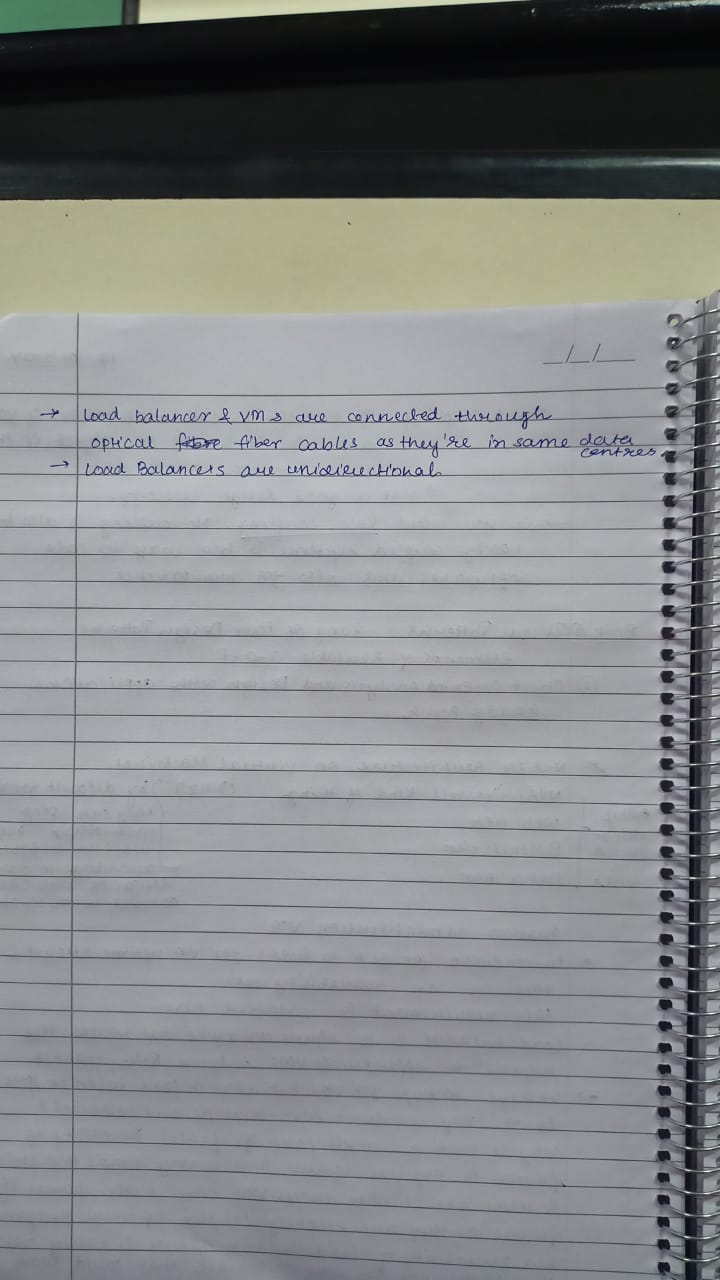 _/_/_
→ Load balancer & VMs are connected through
optical fiber cables as they're in same data centres.
→ Load Balancers are unidirectional.